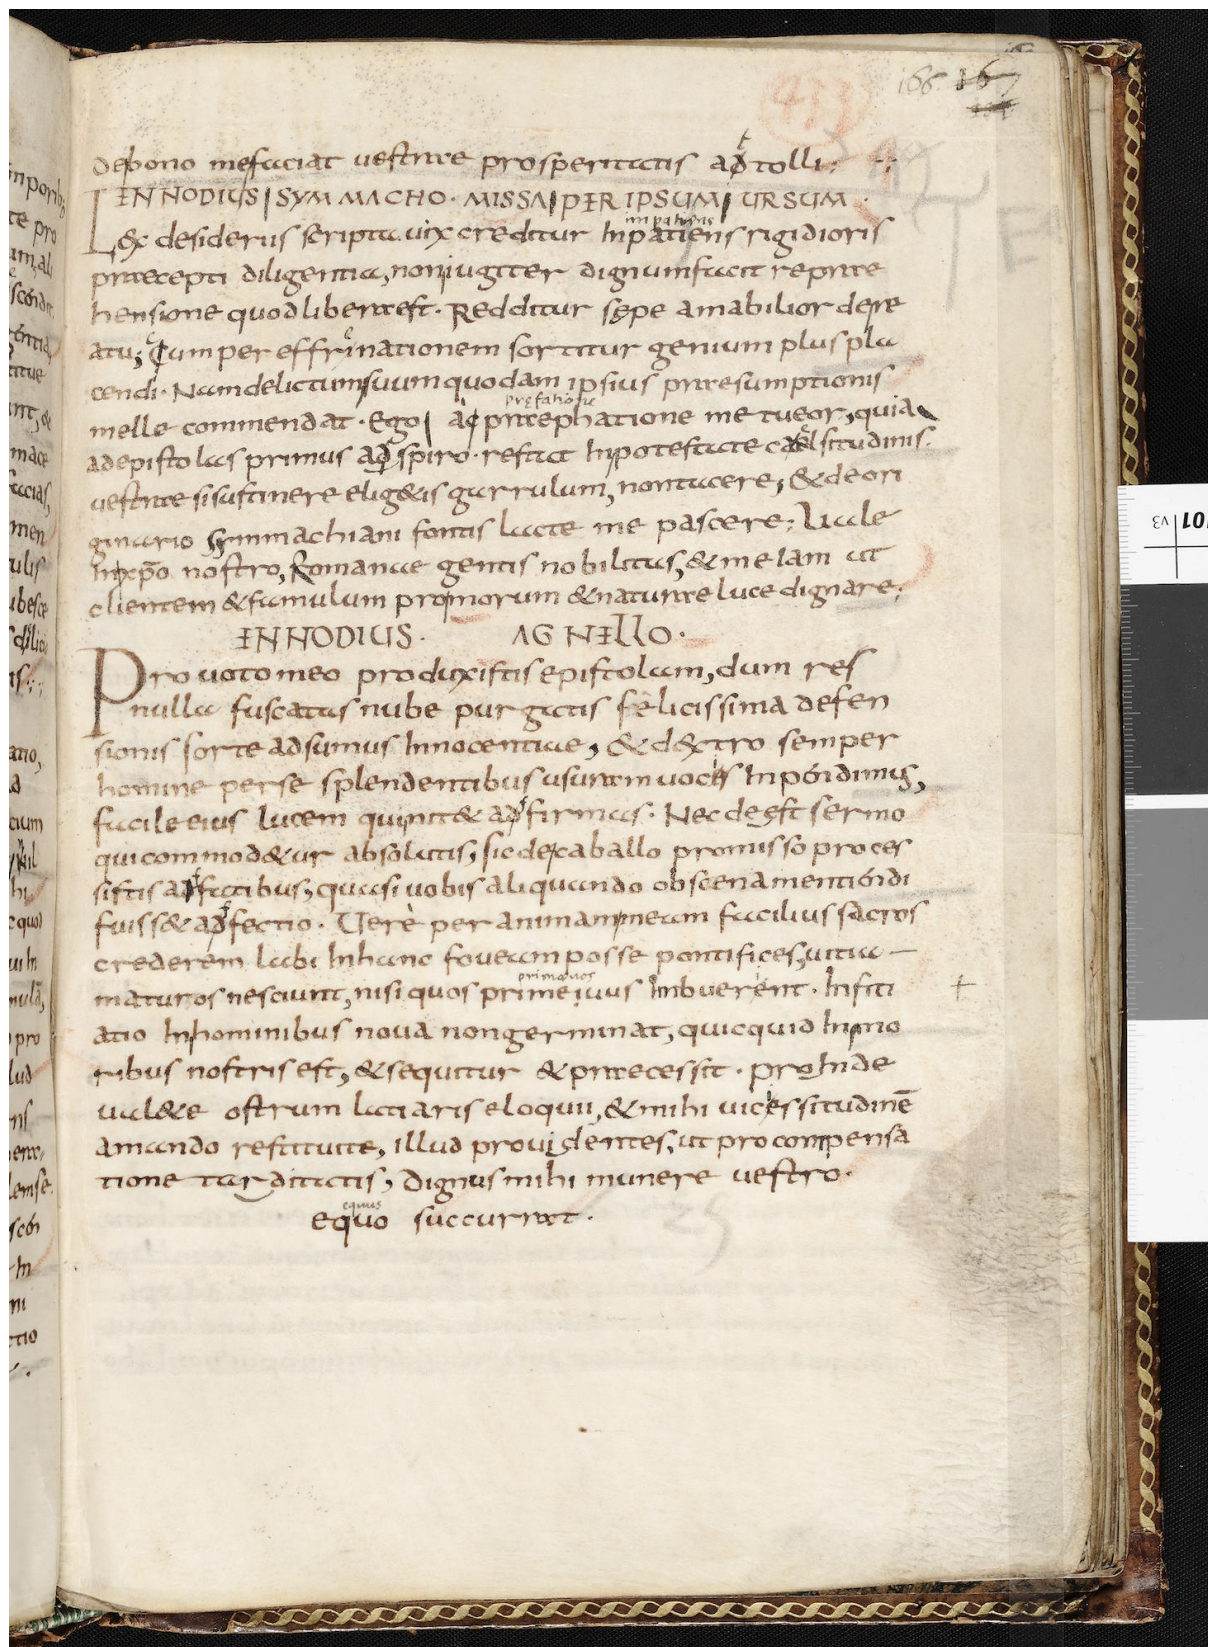 166. 167
De bono me faciat uestrae prosperitatis adtolli;
ENNODIUS SYMMACHO. MISSA PER IPSUM URSUM.
Lex desideriis scripta uix creditur Inpatiens rigidioris
impatiens
praecepti diligentia, non iugiter dignum facit reprae
hensione quod libera est. Redditur sepe amabilior de re
atu, Cum per effrinationem sortitur genium plus pla
cendi. Nam delictum suum quodam ipsius praesumptionis
prefatione
melle commendat. Ego ac praephatione me tueor, quia
ad epistolas primus adspiro. restat In potestate caelsitudinis.
uestrae si sustinere elig&is garrulum, non tacere, & de ori
ginario Symmachiani fontis lacte me pascere; Uale
In xpo nostro, Romanae gentis nobilitas, & me Iam ut
clientem & famulum promorum & naturae luce dignare;
ENNODIUS. AGNELLO.
Pro uoto meo produxistis epistolam, dum res
nulla fuscatas nube purgatis felicissima defen
sionis sorte adsumus Innocentiae, & d&xtro semper
homine per se splendentibus usuram uocis Inpendimus,
facile eius lucem quiuit & adfirmas. Nec deest sermo
qui commod&ur absolutis, sic de caballo promisso proces
sistis adfatibus, quasi uobis aliquando obscena mentiendi
fuiss& adfectio. Uere per animam meam facilius sacros
crederem labi In hanc foueam posse pontifices, uitia
primaeuos
maturos nesciunt, nisi quos primeiuus Inbuerent. Insiti
atio In hominibus noua non germinat, quicquid In mo
ribus nostris est, & sequitur & praecessit. proInde
ual&e ostrum latiaris eloquii, & mihi uicessitudinē
amando restituite, illud prouidentes, ut pro compensa
tione tarditatis, dignus mihi munere uestro.
equus
equo succurrat.